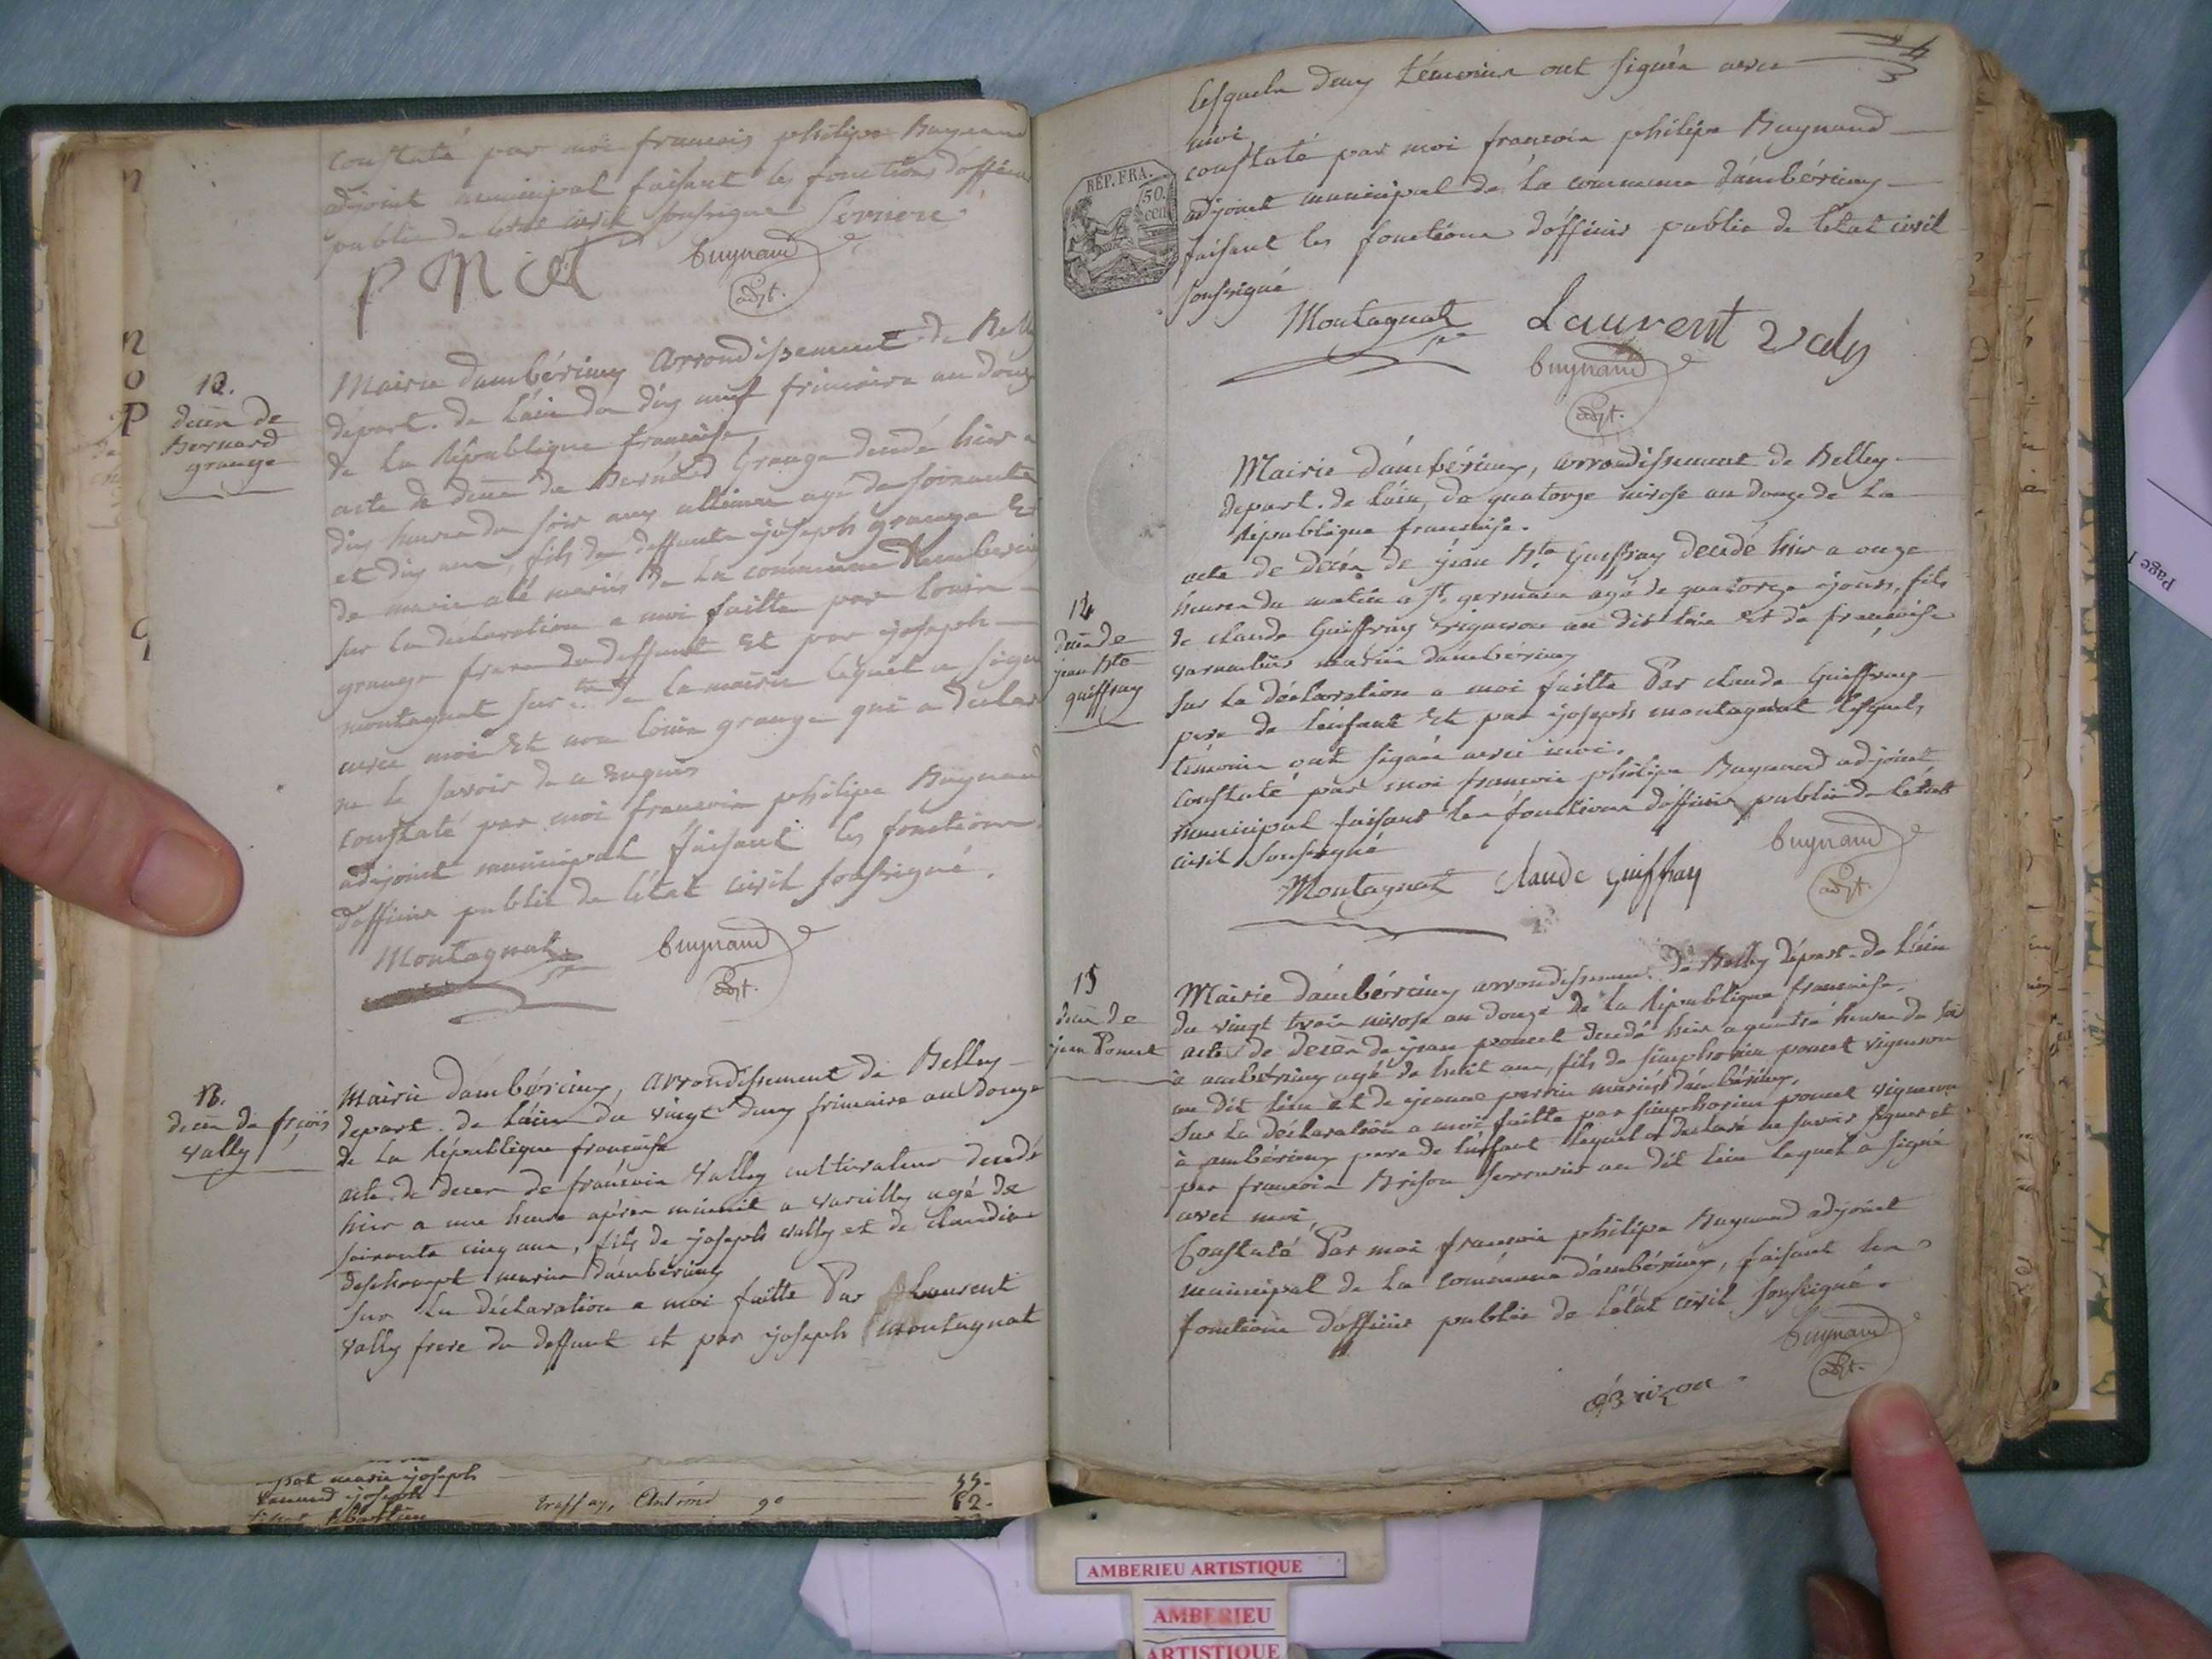 constaté par moi francois philipe Buynand
adjoint municipal faisant les fonctions d'officier
public de l'état civil soussigné Serriere
P Nicod
buynand
adjt.
12.
décès de
Bernard
grange
Mairie d'ambérieux arrondissement de Bell
départ. de l'ain du dix neuf frimaire an douze
de la République francaise
acte de décès de Bernard Grange décédé hier a
dix heures du soir aux agé de soixante
et dix ans, fils de deffunts joseph grange Et
de marie mariés de la commune d'amberieux
sur la déclaration a moi faitte par louis
grange frere du deffunt Et par joseph
montagnat de la mairie lequel a signé
avec moi Et non louis grange qui a déclaré
ne le savoir de ce Enquis
constaté par moi francois philipe Buynand
adjoint municipal faisant les fonctions
d'officier public de l'état civil soussigné.
Montagnat
buynand
adjt.
13.
décès de frçois
vally
Mairie d'ambérieux, arrondissement de Belley
départ. de l'ain du vingt deux frimaire an douze
de la République francaise
acte de deces de francois Vally cultivateur décédé
hier a une heure après minuit a vareilles agé de
soixante cinq ans, fils de joseph vally et de claudine
deschampt mariés d'ambérieux
sur la déclaration a moi faitte Par Laurent
vally frere du deffunt et par joseph montagnat
pot marie joseph
joseph
55.
treffay, Antoine 90
82.
lesquels deux témoins ont signés avec
moi
constaté par moi francois philipe Buynand
adjoint municipal de la commune d'ambérieux
faisant les fonctions d'officier public de l'état civil
soussigné
RÉP. FRA.
50.
cen
Montagnat
Laurent valy
buynand
adjt.
14
décès de
jean Bte
guiffray
Mairie d'ambérieux, arrondissement de Belley
départ. de l'ain, du quatorze nivose an douze de la
République francaise.
acte de décès de jean Bte Guiffray décédé hier a onze
heures du matin a St. germain agé de quatorze jours, fils
de claude Guiffray vigneron au dit lieu Et de francoise
mariés d'amberieux
sur la déclaration a moi faitte Par claude Guiffray
pere de l'enfant Et par joseph montagnat lesquels
témoins ont signés avec moi.
constaté par moi francois philipe Buynand adjoint
municipal faisant les fonctions d'officier public de l'état
civil soussigné
buynand
adjt.
Montagnat
claude guiffray
15
décès de
jean Poncet
Mairie d'ambérieux arrondissem. de Belley départ. de l'ain
du vingt trois nivose an douze de la République francaise.
acte de décès de jean poncet décédé hier a quatre heures du soir
à ambérieux agé de huit ans, fils de simphorien poncet vigneron
au dit lieu et de jeanne perrin mariés d'ambérieux.
Sur la déclaration a moi faitte par simphorien poncet vigneron
à ambérieux pere de l'enfant lequel a déclaré ne savoir signer et
par francois Brison serrurier au dit lieu lequel a signé
avec moi
Constaté Par moi francois philipe Buynand adjoint
municipal de la commune d'ambérieux, faisant les
fonctions d'officier public de l'état civil soussigné.
buynand
adjt.
Brizon
AMBERIEU ARTISTIQUE
AMBERIEU
ARTISTIQUE